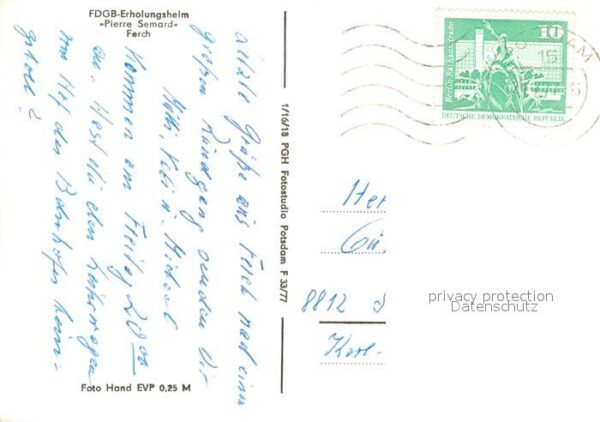 FDGB-Erholungsheim
»Pierre Semard«
Ferch
Letzte Grüße aus Ferch nach einem
großen Rundgang senden Dir
Mutti,
Kommen am Freitag 20 00
an. Hast du den
vom Hf. des Bahnhofes
geholt?
Foto Hand EVP 0,25 M
1/16/18 PGH Fotostudio Potsdam F 33/77
10
Berlin, Rathausstraße
DEUTSCHE DEMOKRATISCHE REPUBLIK
15
Her
Gü
8812
Karl-
privacy protection
Datenschutz